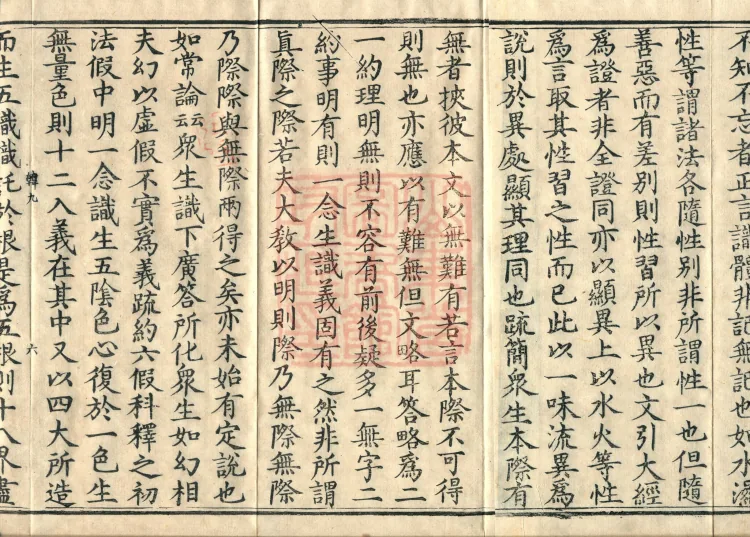 不知不忘者正言識體非記無記也如水濕
性等謂諸法各隨性別非所謂性一也但隨
善惡而有差別則性習所以異也文引大經
為證者非全證同亦以顯異上以水火等性
爲言取其性習之性而已此以一味流異爲
說則於異處顯其理同也䟽簡衆生本際有
無者挾彼本文以無難有若言本際不可得
則無也亦應以有難無但文略耳答略爲二
一約理明無則不容有前後疑多一無字二
約事明有則一念生識義固有之然非所謂
眞際之際若夫大教以明則際乃無際無際
乃際際與無際兩得之矣亦未始有定說也
如常論云云衆生識下廣答所化衆生如幻相
夫幻以虛假不實爲義䟽約六假科釋之初
法假中明一念識生五陰色心復於一色生
無量色則十二入義在其中又以四大所造
韓九
六
而生五識識託於根是爲五根則十八界盡